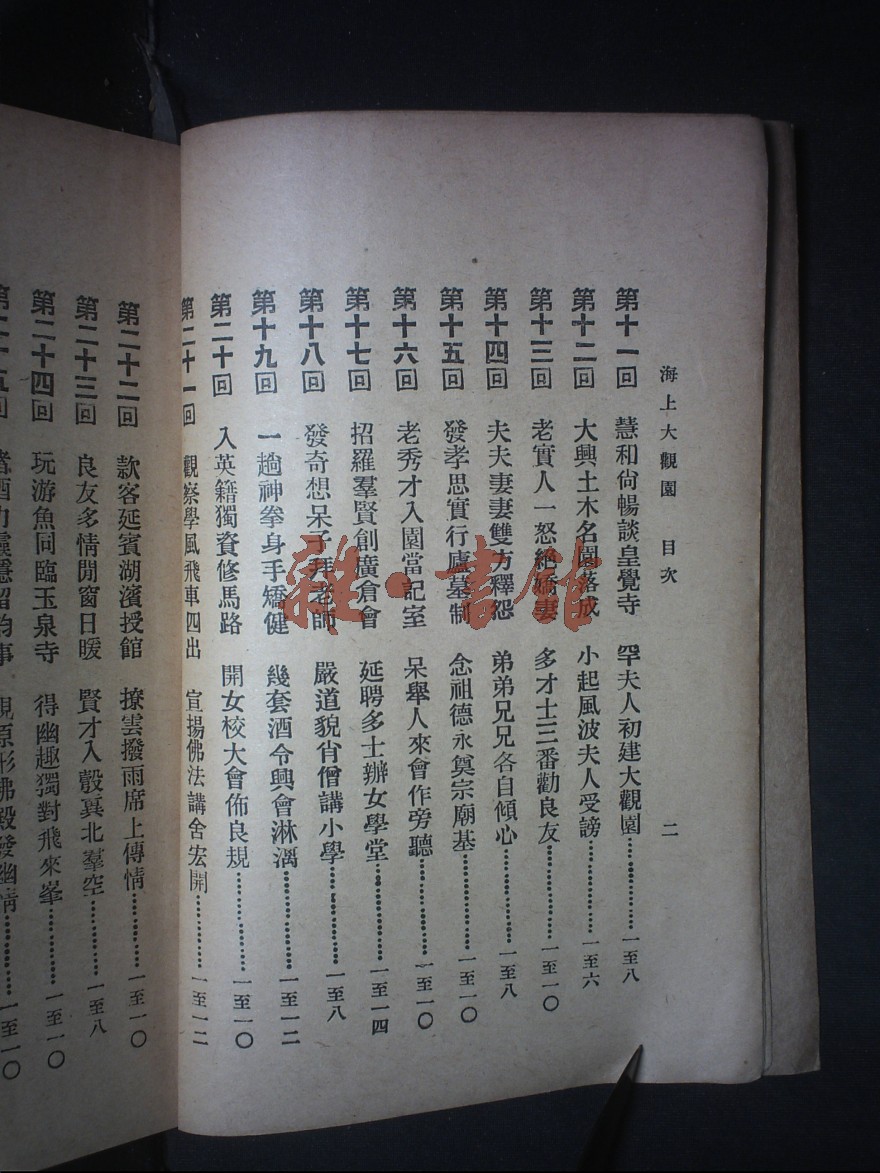 海上大觀園 目次 二
第十一回 慧和尙暢談皇覺寺 罕夫人初建大觀園…………一至八
第十二回 大興土木名園落成 小起風波夫人受謗…………一至六
第十三回 老實人一怒絕嬌妻 多才士三番勸良友…………一至一〇
第十四回 夫夫妻妻雙方釋怨 弟弟兄兄各自傾心…………一至八
第十五回 發孝思實行廬墓制 念祖德永奠宗廟基…………一至一〇
第十六回 老秀才入園當記室 呆舉人來會作旁聽…………一至一〇
第十七回 招羅羣賢創廣倉會 延聘多士辦女學堂…………一至一四
第十八回 發奇想呆子拜老師 嚴道貌肖僧講小學…………一至八
第十九回 一趟神拳身手矯健 幾套酒令興會淋漓…………一至一二
第二十回 入英籍獨資修馬路 開女校大會佈良規…………一至一〇
第二十一回 觀察學風飛車四出 宣揚佛法講舍宏開…………一至一二
第二十二回 款客延賓湖濱授館 撩雲撥雨席上傳情…………一至一〇
第二十三回 良友多情閒窗日暖 賢才入彀冀北羣空…………一至八
第二十四回 玩游魚同臨玉泉寺 得幽趣獨對飛來峯…………一至一〇
第二十五回 現原形佛殿發幽情…………一至一〇
雜·書館